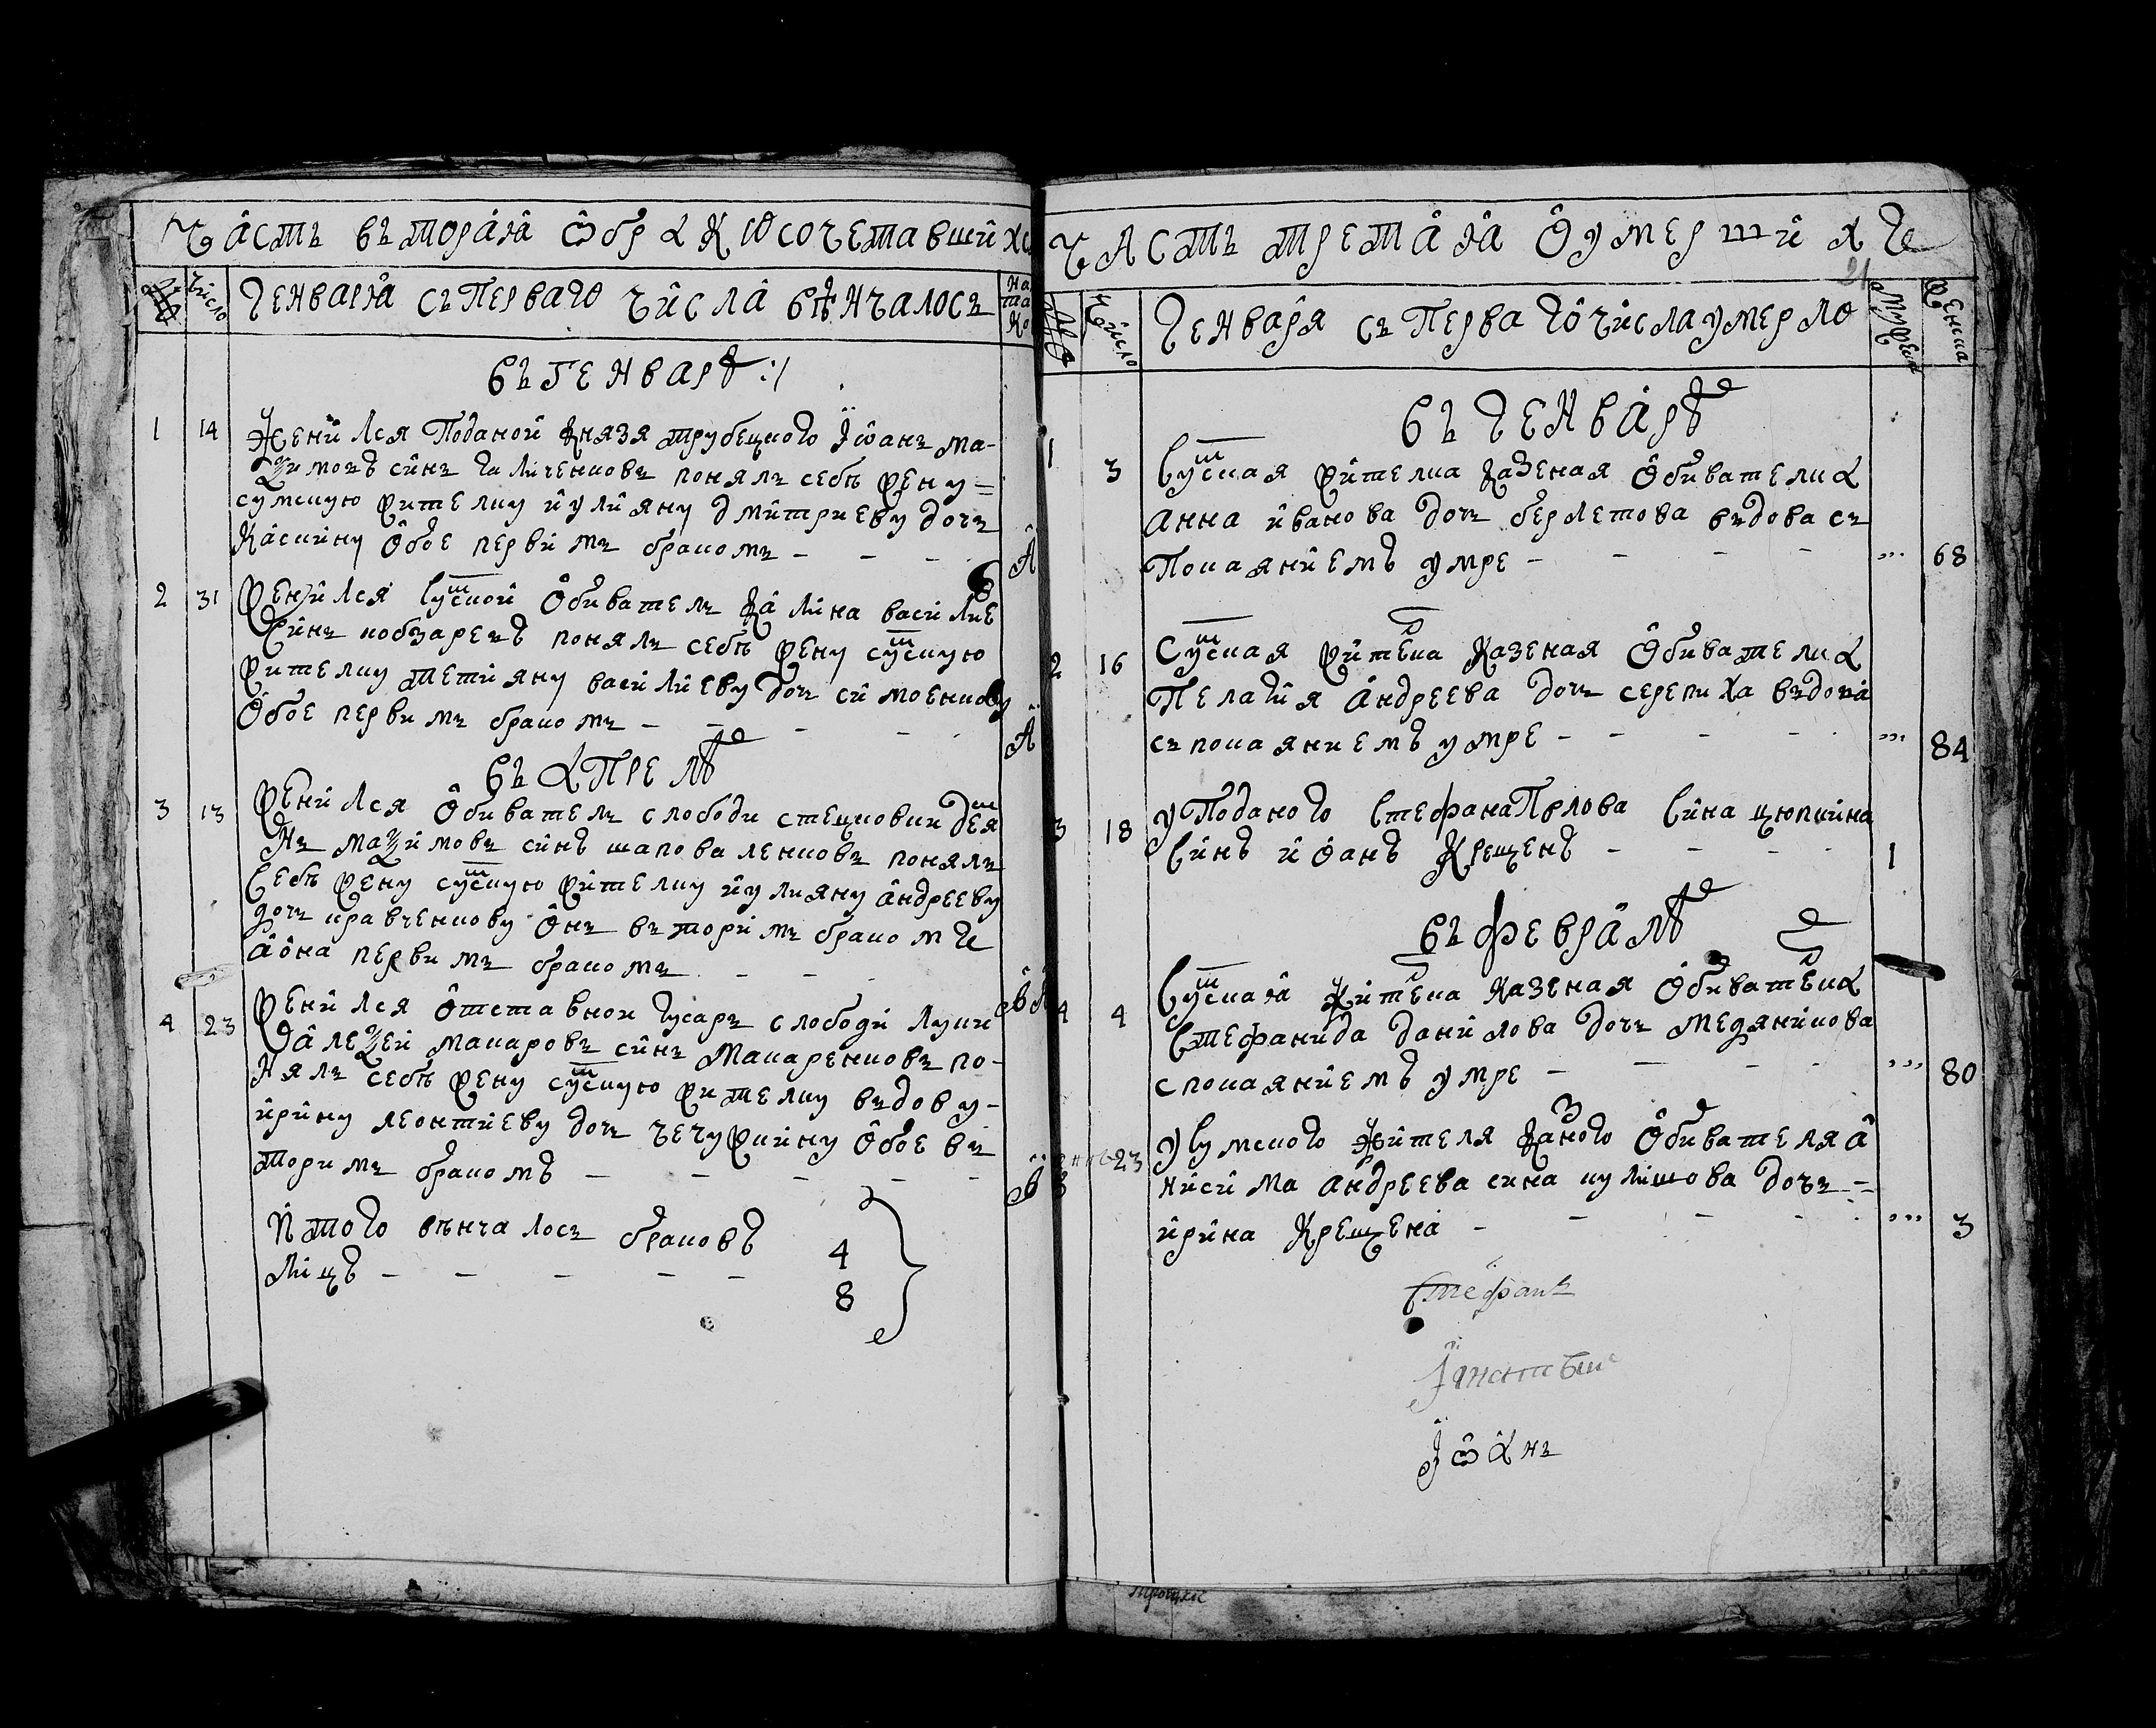 Часть вътораѧ ѡбракосочетавшихс
число
генваря съ перваго числа вѣнчалось
на
та
ко
въ генварѣ :/
1 14 женился поданой князя трубецкого Іѡанъ ма-
ѯимовъ синъ галиченковъ понялъ себѣ жену =
сумскую жителку иулияну дмитриеву дочь
каскину обое первимъ бракомъ - - - а
2 31 женился сумской обиватель калина василие
синъ кобзаревъ понялъ себѣ жену сумскую
жителку тетияну василиеву дочь симоенкову
обое первимъ бракомъ - - - - а
въ апрелѣ
3 13 женился обиватель слободи стецковки демя
нъ маѯимовъ синъ шаповаленковъ понялъ
себѣ жену сумскую жителку иулияну андрееву
дочь кравченкову онъ вьторимъ бракомъ
аона первимъ бракомъ - - - в а
4 23 женился отставной гусаръ слободи луки
алеѯей макаровъ синъ макаренковъ по-
нялъ себѣ жену сумскую жителку вьдову -
ирину леонтиеву дочь чечужкину обое вь
торимъ бракомъ - - - - - в
итого вѣнчалось браковъ 4
лицъ - - - - - 8
Часть третаѧ оумершихъ
21
число
мужеска
женска
генваря съ перваго числа умерло
въ генварѣ
1 3 сумская жителка казеная обивателка
анна иванова дочь берлетова вьдова съ
покаяниемъ умре - - - - „„ 68
2 16 сумская жителка казеная обивателка
пелагия андреева дочь серепиха вьдова
съ покаяниемъ умре - - - - „„ 84
3 18 у поданого стефана павлова сина цюпкина
синъ иоанъ крещенъ - - - - 1
въ февралѣ
4 4 сумская жителка казеная обивателка
стефанида данилова дочь медяникова
с покаяниемъ умре - - - - „„ 80
23 у сумского жителя казного обивателя а
нисима андреева сина кулишова дочь =
ирина крещена - - - - „„ 3
Стефанъ
Іѡанъ
троицкой